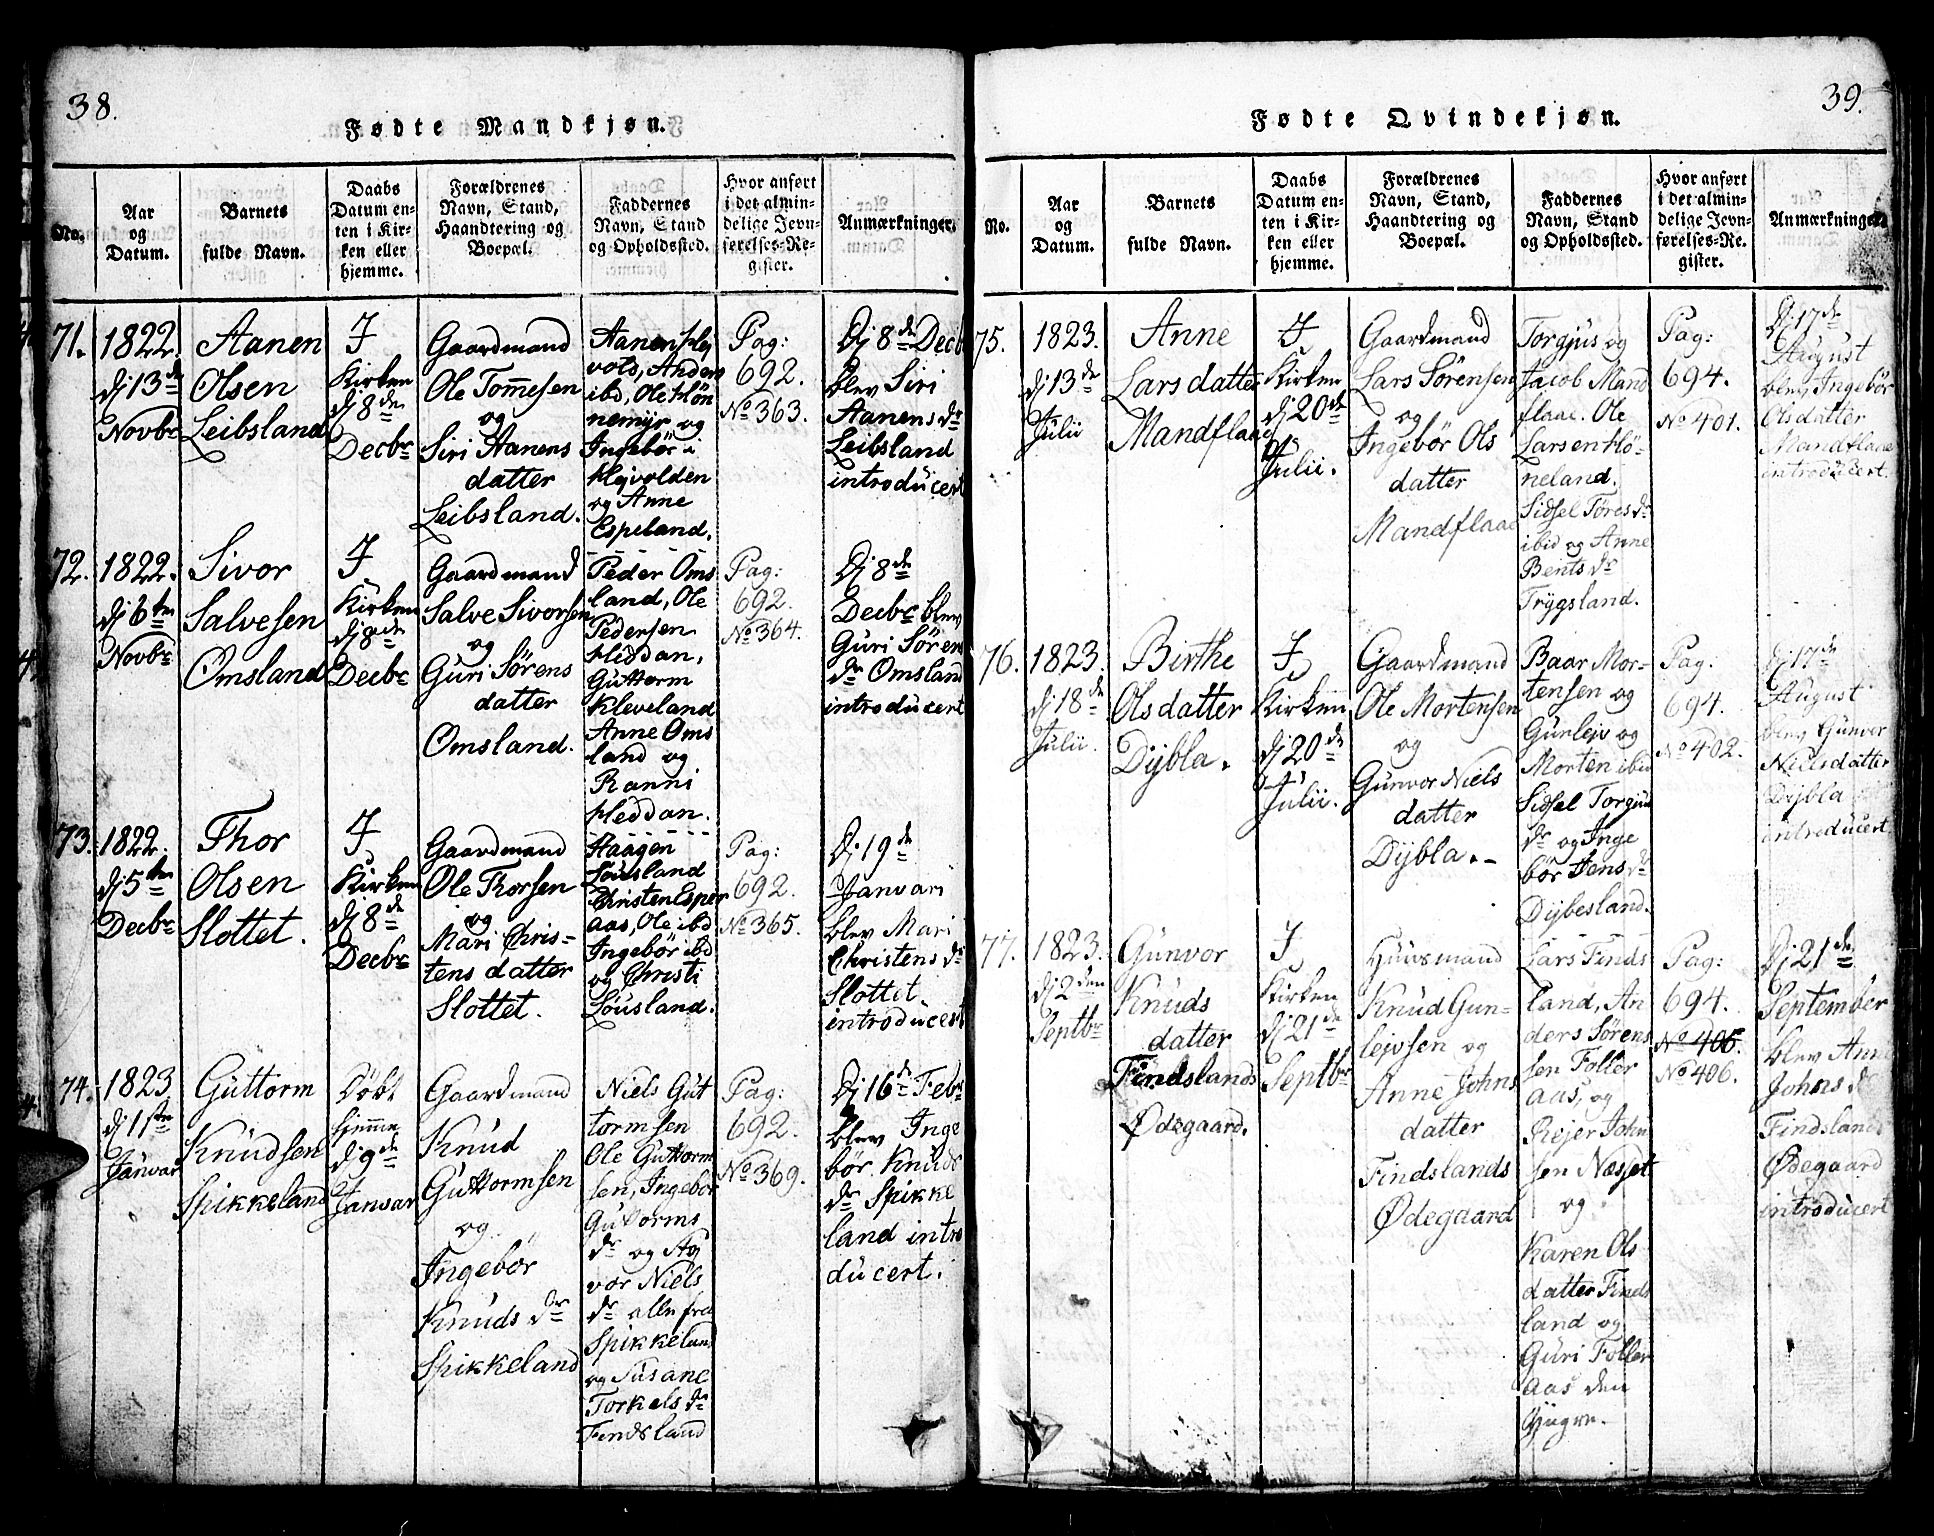 38.
Fødte Mandkjøn.
No.
Aar
og
Datum.
Barnets
fulde Navn.
Daabs
Datum en-
ten i Kir-
ken eller
hjemme.
Forældrenes
Navn, Stand,
Haandtering og
Boepæl.
Faddernes
Navn, Stand
og Opholdssted.
Hvor anført
i det almin-
delige Jevn-
førelses-Re-
gister.
Anmærkninger.
71.
1822.
dj 13de
Novbr
Aanen
Olsen
Leibsland
I
Kirken
dj 8de
Decbr
Gaardmand
Ole Tom̄esen
og
Siri Aanens
datter
Leibsland.
Aanen Hej
vold, Anders
ibd, Ole Høn
nemyr og
Ingebør i
Hejvolden
og Anne
Espeland.
Pag:
692.
No 363.
Dj 8de Decb
blev Siri
Aanens dr
Leibsland
introducert
72.
1822.
dj 6ten
Novbr
Sivor
Salvesen
Omsland
I
Kirken
dj 8de
Decbr
Gaardmand
Salve Sivorsen
og
Guri Sørens
datter
Omsland.
Peder Oms
land, Ole
Pedersen
Heddan,
Guttorm
Kleveland
Anne Oms
land og
Ranni
Heddan.
Pag:
692.
No 364.
Dj 8de
Decbr blev
Guri Søren
dr Omsland
introducert
73.
1822.
dj 5ten
Decbr
Thor
Olsen
Slottet.
I
Kirken
dj 8de
Decbr
Gaardmand
Ole Thorsen
og
Mari Chris-
tens datter
Slottet.
Haagen
Søusland
Christen Esper
aas, Ole ibd
Ingebør ibd
og Christi
Søusland.
Pag:
692.
No 365.
Dj 19de
Januari
blev Mari
Christens dr
Slottet
introducert
74.
1823
dj 1ste
Januar
Guttorm
Knudsen
Spikkeland
Døbt
hjemme
dj 9de
Januar
Gaardmand
Knud
Guttormsen
og
Ingebør
Knuds dr
Spikkeland
Niels Gut
tormsen
Ole Guttorm
sen, Ingebør
Guttorms
dr og Aj
vor Niels
dr alle fra
Spikkeland
og Susane
Torkels dr
Findsland
Pag:
692.
No 369.
Dj 16de Febr
blev Inge
bør Knuds
dr Spikke
land intro
ducert.
39.
Fødte Qvindekjøn.
No.
Aar
og
Datum.
Barnets
fulde Navn.
Daabs
Datum en-
ten i Kir-
ken eller
hjemme.
Forældrenes
Navn, Stand,
Haandtering og
Boepæl.
Faddernes
Navn, Stand
og Opholdssted.
Hvor anført
i det almin-
delige Jevn-
førelses-Re-
gister.
Anmærkninger.
75.
1823.
dj 13de
Julii
Anne
Larsdatter
Mandflaae
I
Kirken
dj 20de
Julii.
Gaardmand
Lars Sørensen
og
Ingebør Ols
datter
Mandflaae
Torgjus og
Jacob Mand
flaae. Ole
Larsen Hø-
neland.
Sidsel Tøres dr
ibid og Anne
Bents dr
Trygsland.
Pag:
694.
No 401.
Dj 17de
August
blev Ingebør
Olsdatter
Mandflaae
introducert.
76.
1823.
dj 18de
Julii.
Birthe
Olsdatter
Dÿbla.
I
Kirken
dj 20de
Julii.
Gaardmand
Ole Mortensen
og
Gunvor Niels
datter
Dÿbla.-
Baar Mor-
tensen og
Gunlejv og
Morten ibid
Sidsel Torgius
dr og Inge
bør Jens dr
Dÿbesland.
Pag:
694.
No 402.
Dj 17de
August
blev Gunvor
Nielsdatter
Dÿbla
introducert.
77.
1823.
dj 2den
Septbr
Gunvor
Knuds
datter
Findslands
Ødegaard.
I
Kirken
dj 21de
Septbr
Huusmand
Knud Gun-
lejvsen og
Anne Johns
datter
Findslands
Ødegaard
Lars Finds
land, An
ders Sørens
sen Foller
aas, og
Rejer John
sen Næsset
og
Karen Ols
datter Finds
land og
Guri Foller
aas den
Yngre.
Pag:
694.
No 405.
No 406.
Dj 21de
September
blev Anne
Johns dr
Findslands
Ødegaard
introducert